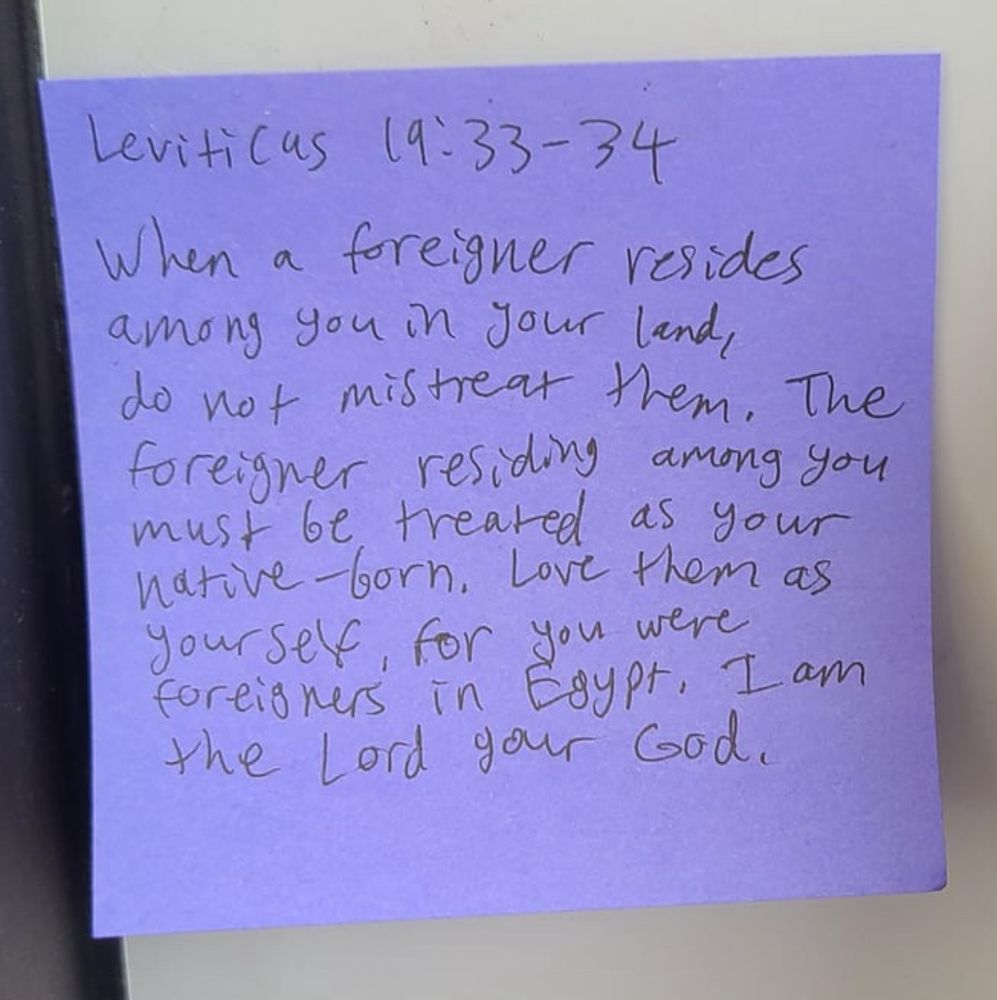 Leviticus 19:33-34
When a foreigner resides
among you in your land,
do not mistreat them. The
foreigner residing among you
must be treated as your
native-born. Love them as
yourself, for you were
foreigners in Egypt. I am
the Lord your God.